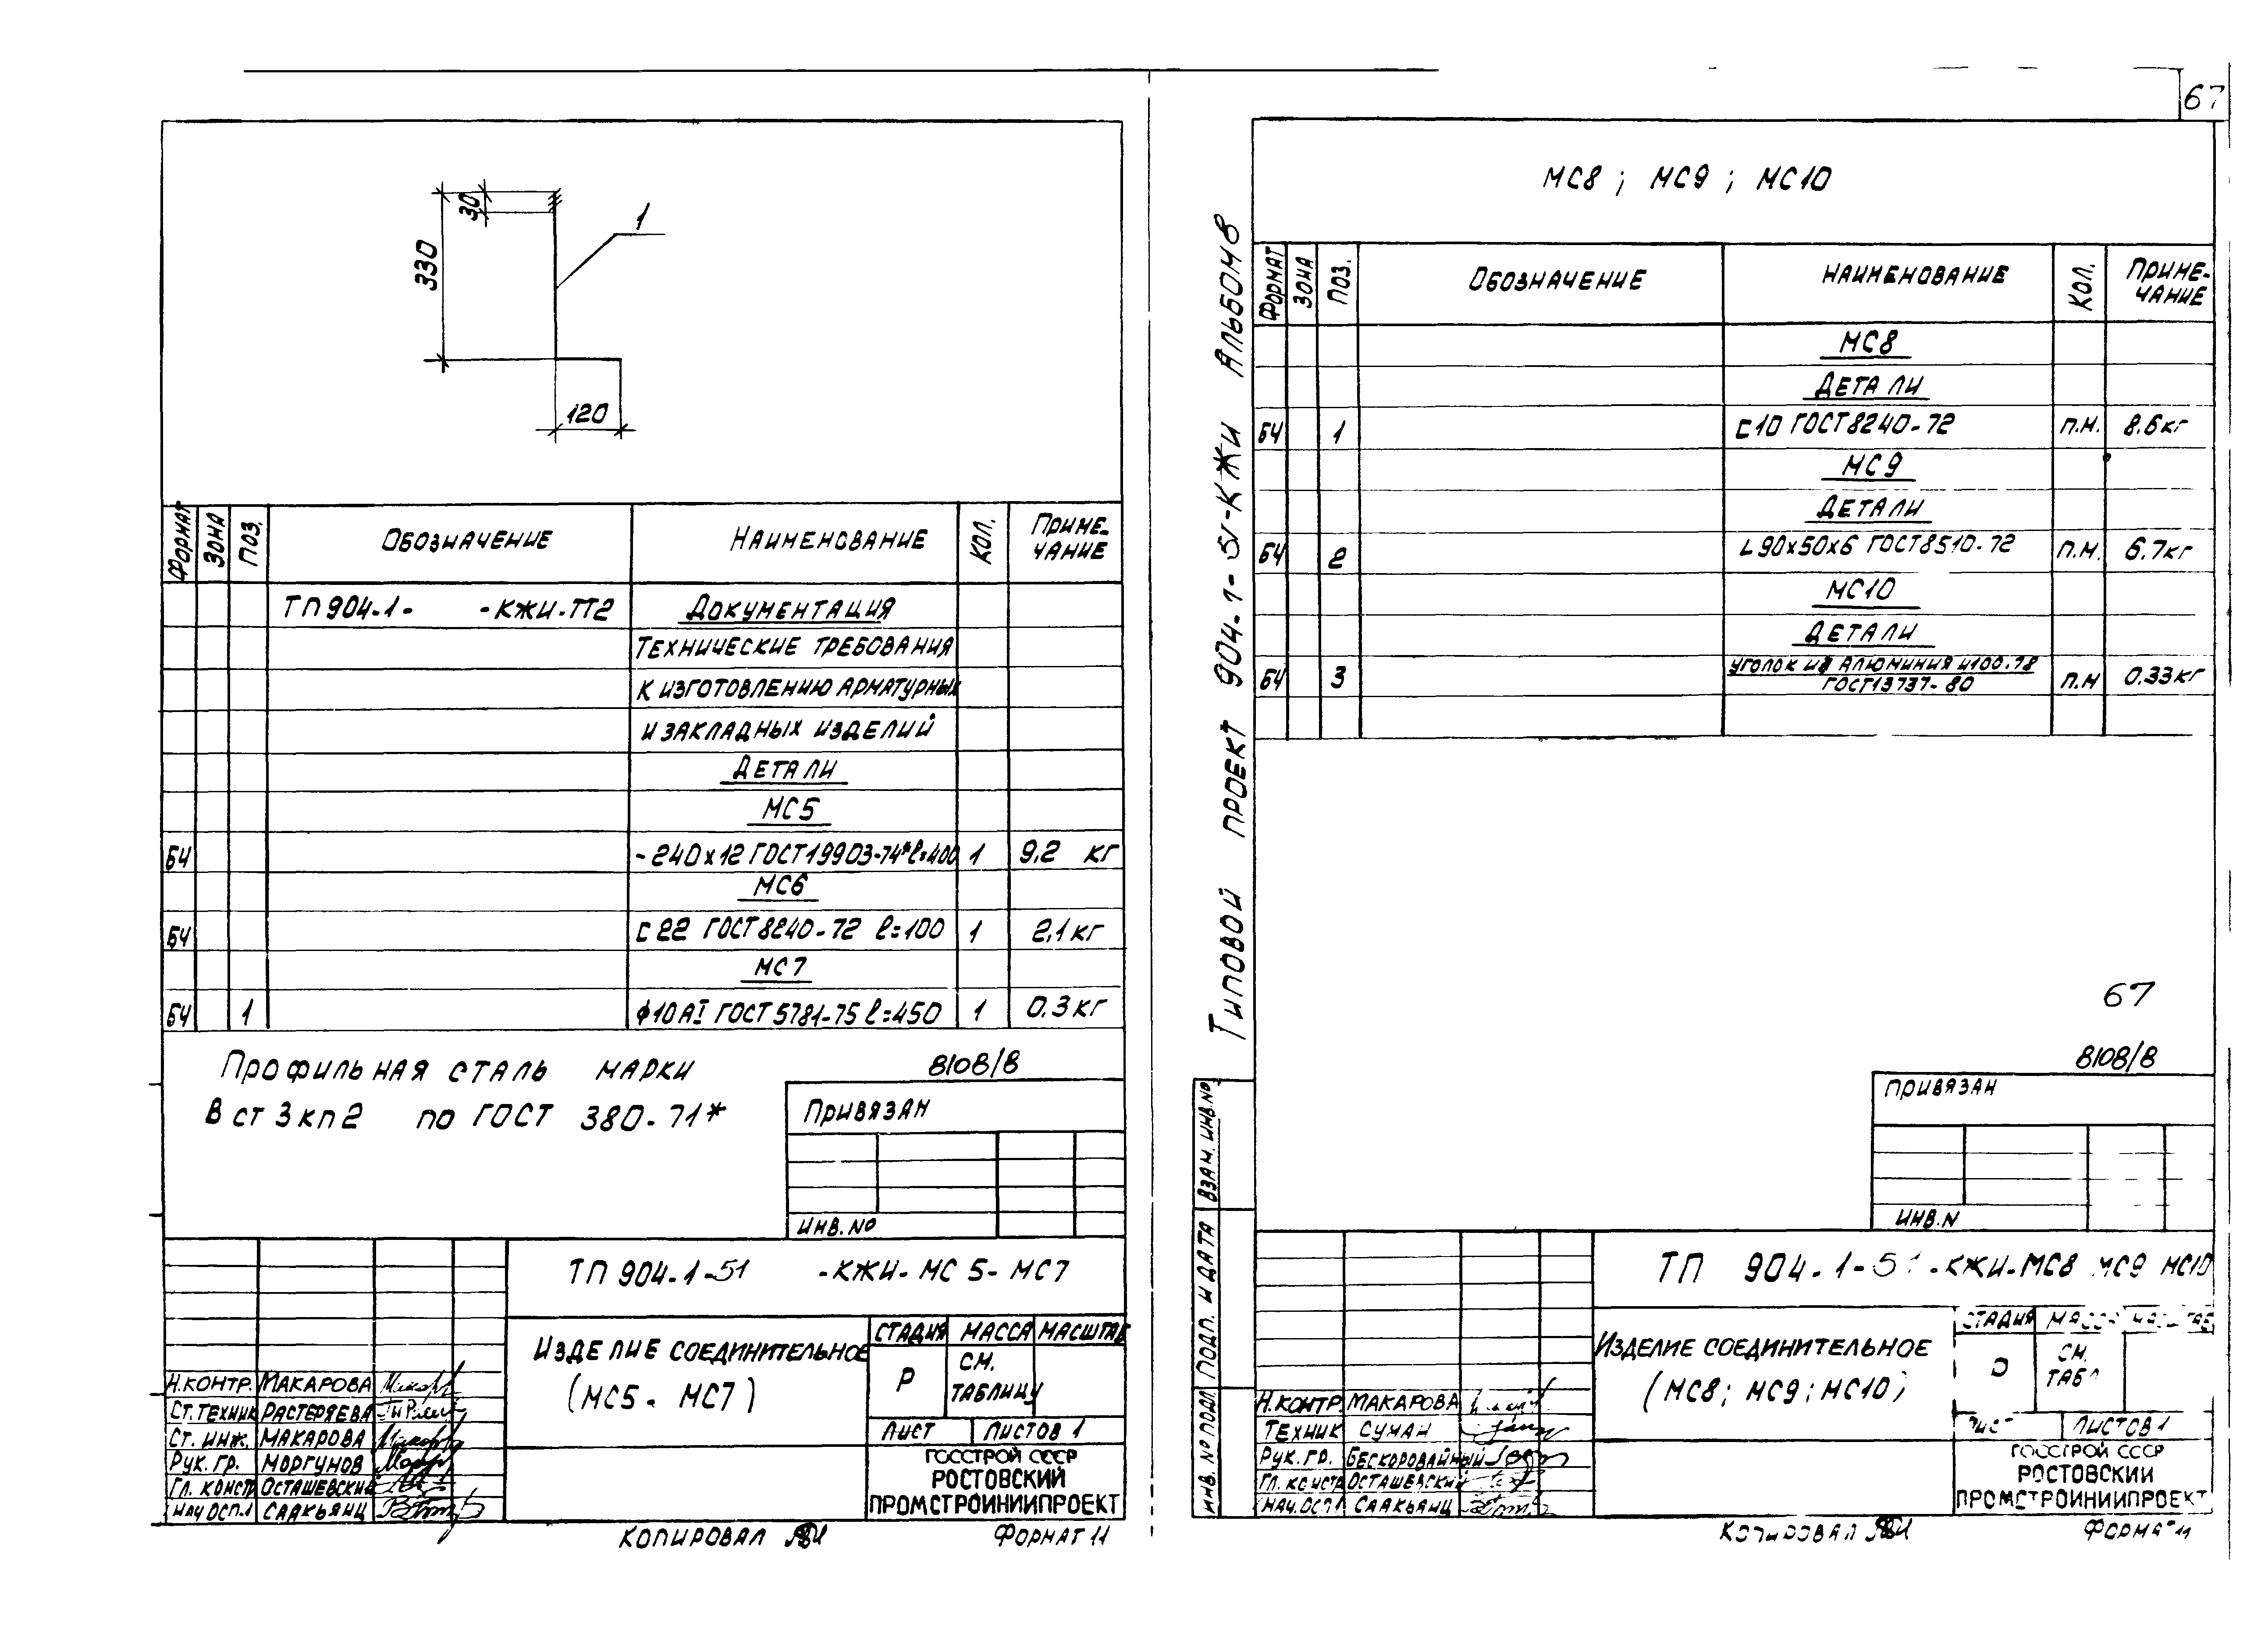 67
30
330
1
120
ФОРМАТ ЗОНА ПОЗ. ОБОЗНАЧЕНИЕ НАИМЕНОВАНИЕ КОЛ. ПРИМЕ-
ЧАНИЕ
ТП904-1- -КЖИ-ТТ2 ДОКУМЕНТАЦИЯ
ТЕХНИЧЕСКИЕ ТРЕБОВАНИЯ
К ИЗГОТОВЛЕНИЮ АРМАТУРНЫХ
И ЗАКЛАДНЫХ ИЗДЕЛИЙ
ДЕТАЛИ
МС5
БЧ -240х12 ГОСТ19903-74* ℓ=400 1 9,2 кг
МС6
БЧ С 22 ГОСТ8240-72 ℓ=100 1 2,1 кг
МС7
БЧ 1 ф10АI ГОСТ5781-75 ℓ=450 1 0.3 кг
ПРОФИЛЬНАЯ СТАЛЬ МАРКИ
В ст 3 кп 2 по ГОСТ 380-71*
8108/8
ПРИВЯЗАН
ИНВ. №
ТП 904-1-51 -КЖИ- МС 5- МС7
ИЗДЕЛИЕ СОЕДИНИТЕЛЬНОЕ
(МС5- МС7)
СТАДИЯ МАССА МАСШТАБ
Р СМ.
ТАБЛИЦУ
ЛИСТ ЛИСТОВ 1
ГОССТРОЙ СССР
РОСТОВСКИЙ
ПРОМСТРОЙНИИПРОЕКТ
Н.КОНТР. МАКАРОВА
СТ.ТЕХНИК РАСТЕРЯЕВА
СТ. ИНЖ. МАКАРОВА
РУК. ГР. МОРГУНОВ
ГЛ. КОНСТР ОСТАШЕВСКИЙ
НАЧ ОСП.1 СААКЬЯНЦ
КОПИРОВАЛ
ФОРМАТ 11
ТИПОВОЙ ПРОЕКТ 904-1-51-КЖИ АЛЬБОМ 8
МС8 ; МС9 ; МС10
ФОРМАТ ЗОНА ПОЗ. ОБОЗНАЧЕНИЕ НАИМЕНОВАНИЕ КОЛ. ПРИМЕ-
ЧАНИЕ
МС8
ДЕТАЛИ
БЧ 1 С10 ГОСТ8240-72 П.М. 8.6 кг
МС9
ДЕТАЛИ
БЧ 2 L 90х50х6 ГОСТ8510-72 П.М. 6.7 кг
МС10
ДЕТАЛИ
БЧ 3 УГОЛОК ИЗ АЛЮМИНИЯ П.М 0.33 кг
ГОСТ13737-80
67
8108/8
ПРИВЯЗАН
ИНВ.N
ВЗАМ. ИНВ.№
ПОДП. И ДАТА
ИНВ. № ПОДЛ.
ТП 904-1-51-КЖИ-МС8 МС9 МС10
ИЗДЕЛИЕ СОЕДИНИТЕЛЬНОЕ
(МС8; МС9; МС10)
СТАДИЯ МАССА МАСШТАБ
СМ.
ТАБЛ
ЛИСТ ЛИСТОВ 1
ГОССТРОЙ СССР
РОСТОВСКИЙ
ПРОМСТРОЙНИИПРОЕКТ
Н.КОНТР. МАКАРОВА
ТЕХНИК СУМАН
РУК. ГР. БЕСКОРОВАЙНЫЙ
ГЛ. КОНСТР ОСТАШЕВСКИЙ
НАЧ. ОСП.1 СААКЬЯНЦ
КОПИРОВАЛ
ФОРМАТ 11